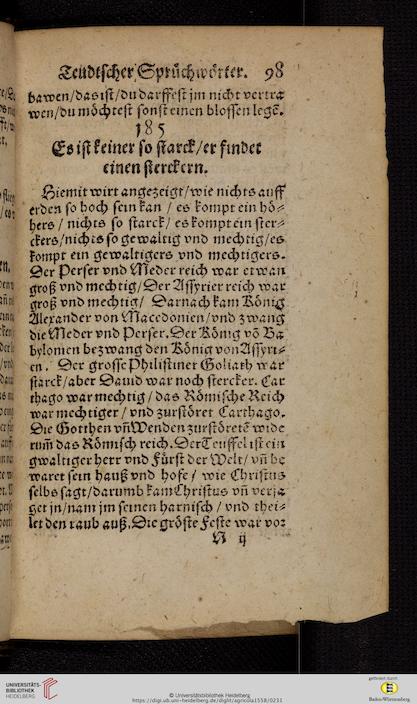 Teudtscher Sprüchwörter. 98
bawen/das ist/du darffest jm nicht vertra
wen/du möchtest sonst einen blossen legē.
185
Es ist keiner so starck/er findet
einen sterckern.
Hiemit wirt angezeigt/wie nichts auff
erden so hoch sein kan / es kompt ein hö⸗
hers / nichts so starck/ es kompt ein ster⸗
ckers/nichts so gewaltig vnd mechtig/es
kompt ein gewaltigers vnd mechtigers.
Der Perser vnd Meder reich war etwan
groß vnd mechtig/Der Assyrier reich war
groß vnd mechtig/ Darnach kam König
Alexander von Macedonien/vnd zwang
die Meder vnd Perser. Der König vō Ba
bylonien bezwang den König von Assyri⸗
en. Der grosse Philistiner Goliath war
starck/aber Dauid war noch stercker. Car
thago war mechtig / das Römische Reich
war mechtiger / vnd zurstöret Carthago.
Die Gotthen vñ Wenden zurstöretē wide
rum̃ das Römisch reich. Der Teuffel ist ein
gwaltiger herr vnd Fürst der Welt/ vñ be
waret sein hauß vnd hofe / wie Christus
selbs sagt/darumb kam Christus vñ verja
get jn/nam jm seinen harnisch / vnd thei⸗
let den raub auß. Die gröste Feste war vor
N ij
UNIVERSITÄTS-
BIBLIOTHEK
HEIDELBERG
© Universitätsbibliothek Heidelberg
https://digi.ub.uni-heidelberg.de/diglit/agricola1558/0231
gefördert durch
Baden-Württemberg